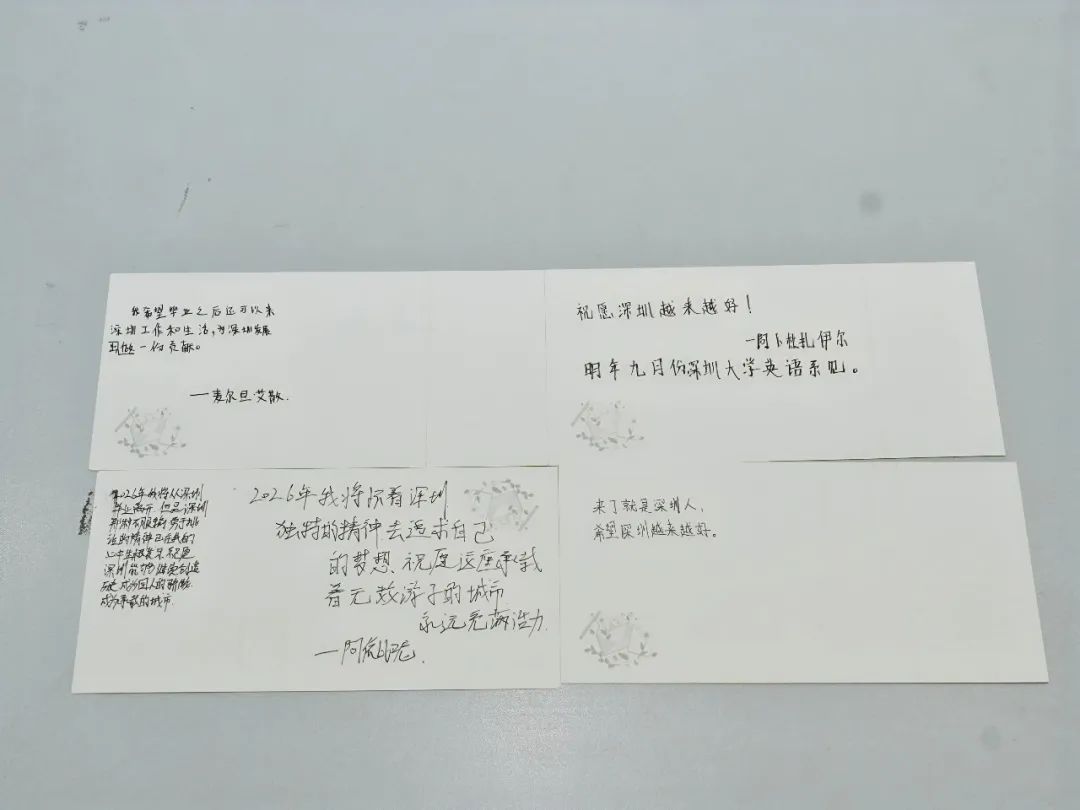 我希望毕业之后还可以来
深圳工作和生活,为深圳发展
一份贡献。
——麦尔旦艾散.
祝愿深圳越来越好!
—阿卜杜扎伊尔
明年九月份深圳大学英语系见。
2026年我将从深圳
毕业离开 但是深圳
的精神已在我的
心中生根发芽.祝愿
深圳能够继续创造
成为国人的骄傲.
成为 的城市.
2026年我将带着深圳
独特的精神 去追求自己
的梦想.祝愿这座承载
着无数游子的城市
永远充满活力.
来了就是深圳人,
希望深圳越来越好。